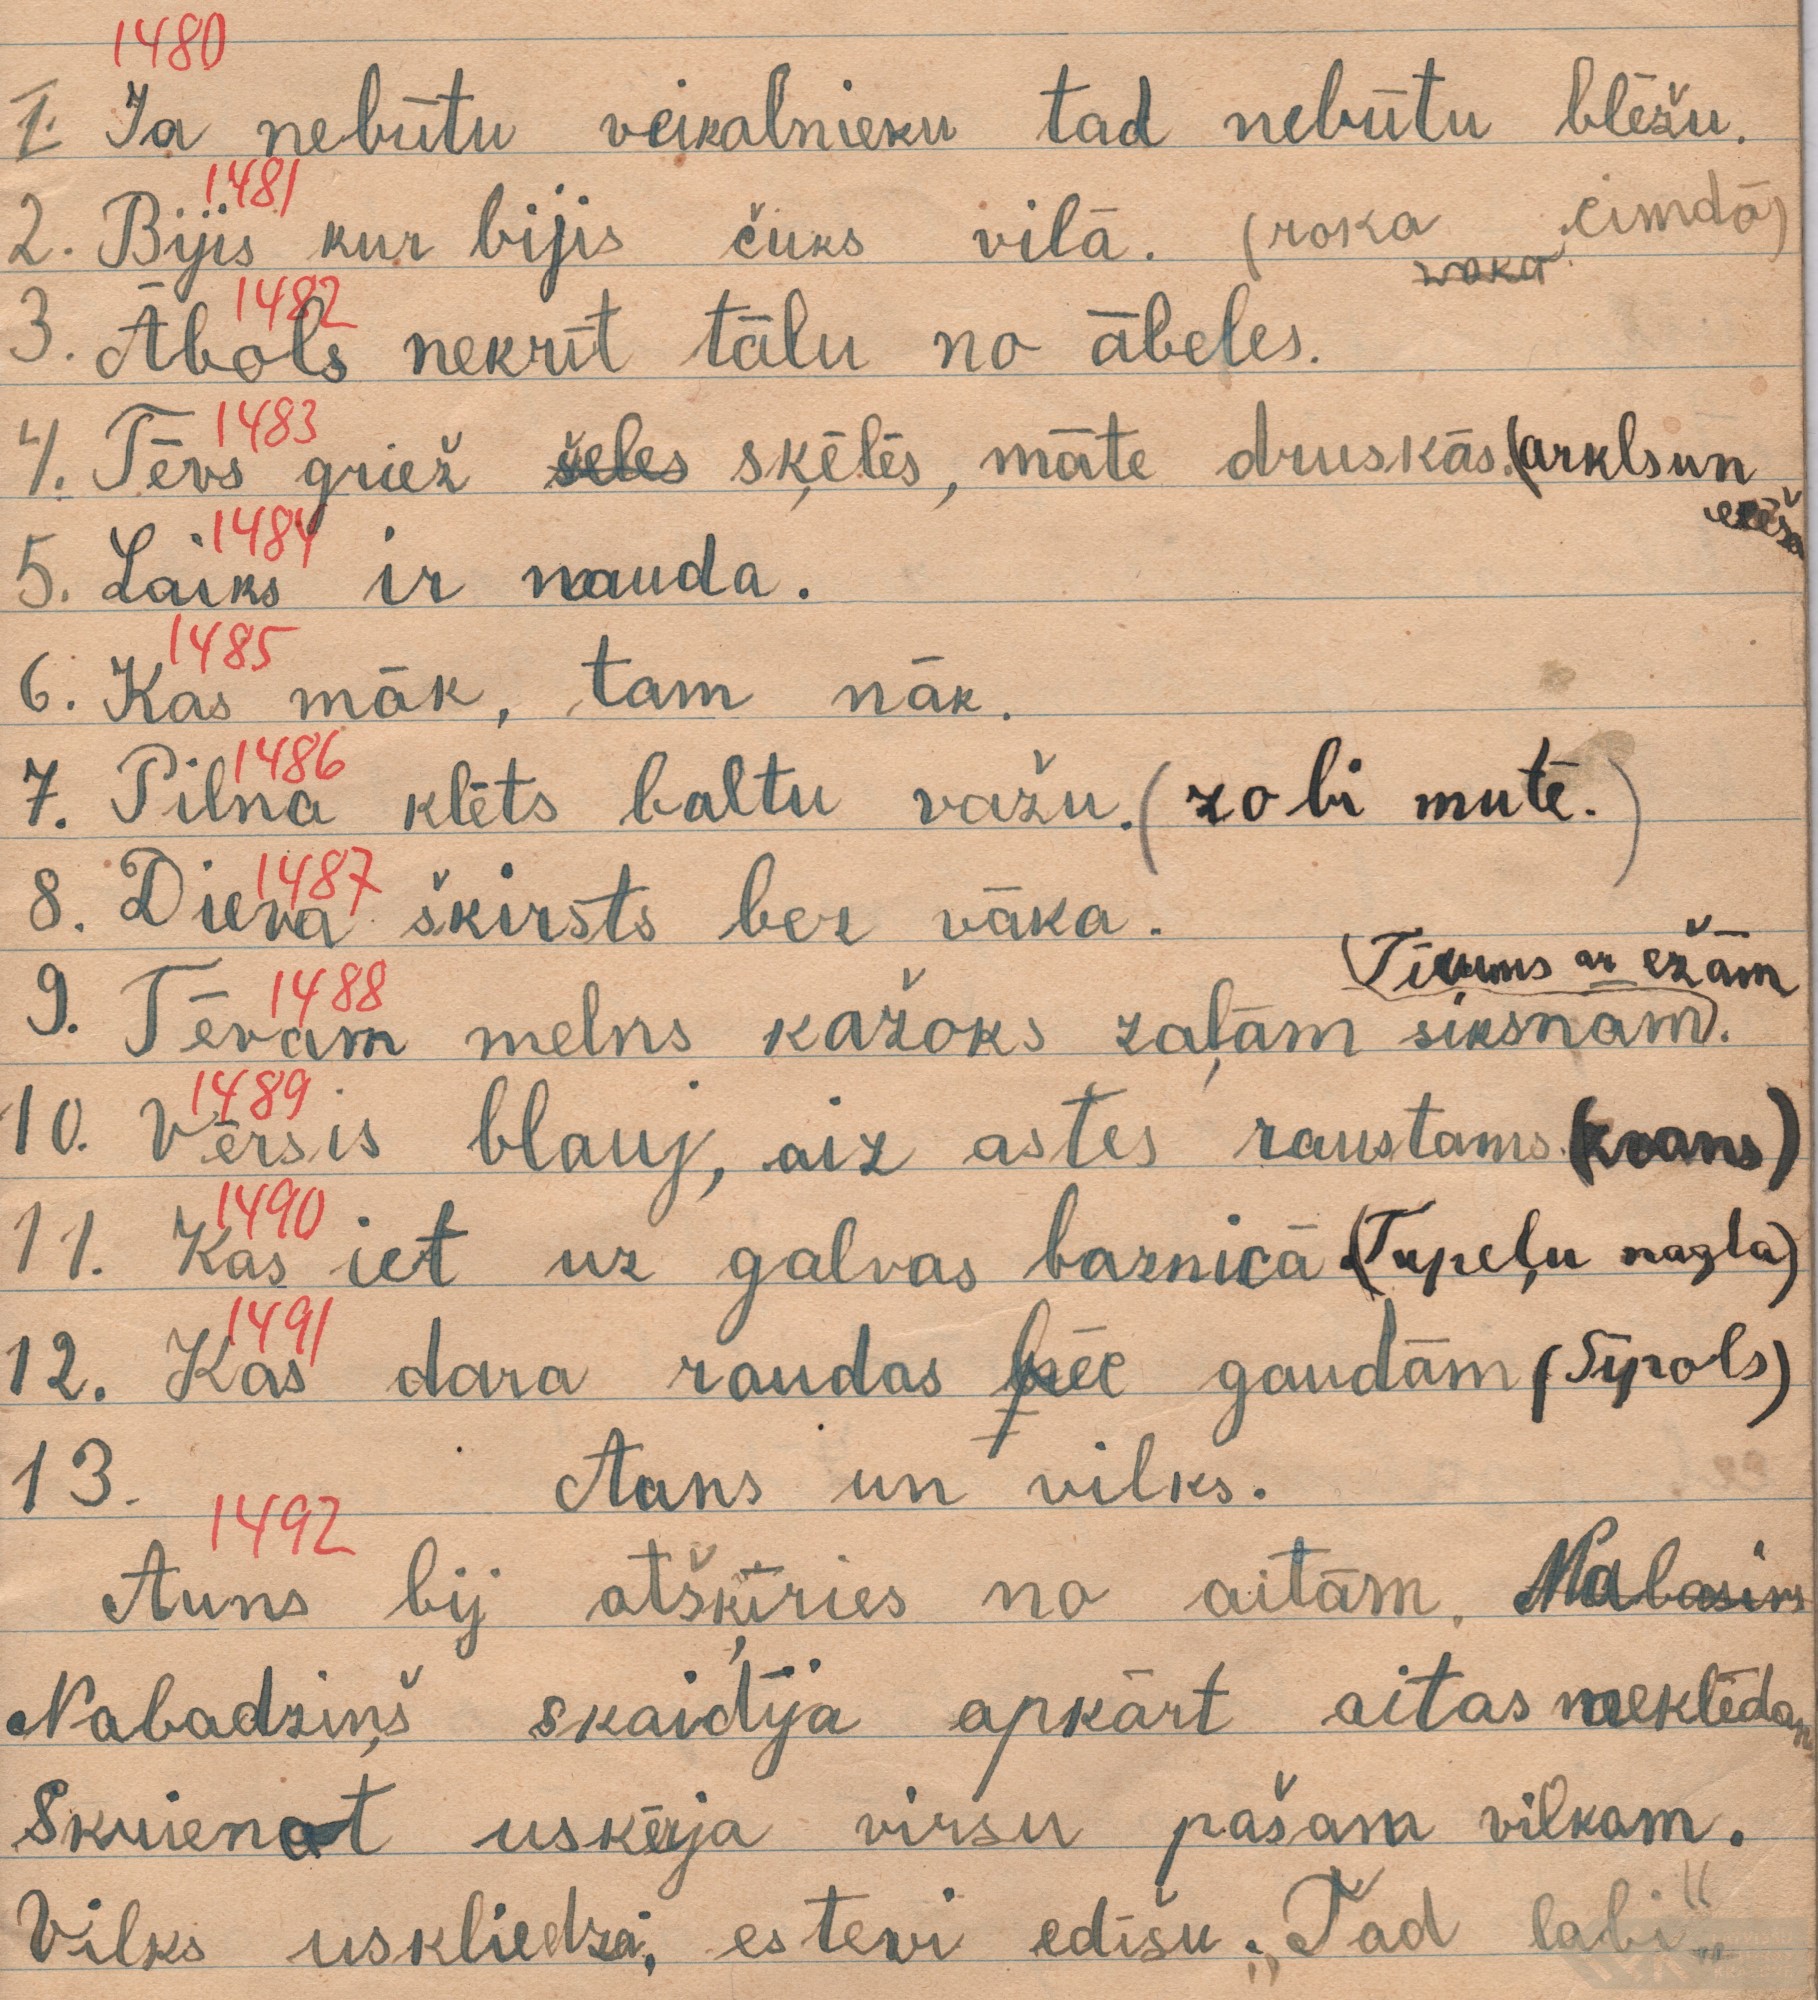 1480
1. Ja nebūtu veikalnieku tad nebūtu blēžu.
1481
2. Bijis kur bijis čuks vilā. (roka cimdā)
1482
3. Ābols nekrīt tālu no ābeles.
1483
4. Tēvs griež šeles šķēlēs, māte druskās. (arklsun
ecēša
1484
5. Laiks ir nauda.
1485
6. Kas māk, tam nāk.
1486
7. Pilna klēts baltu važu. (zobi mutē.)
1487
8. Dieva škirsts bez vāka.
(Tīrums ar ežām
1488
9. Tēvam melns kažoks zaļām siksnam).
1489
10. Vērsis blauj, aiz astes raustams (zvans)
1490
11. Kas iet uz galvas baznicā (Tupeļu nagla)
1491
12. Kas dara raudas pēc gaudām (Sīpols)
13. Auns un vilks.
1492
Auns bij atšķīries no aitām.
Nabadziņš skaidīja apkārt aitas meklēdam
Skrienot uskērja virsu pašam vilkam.
Vilks uskliedza, es tevi edīšu. „Tad labi"